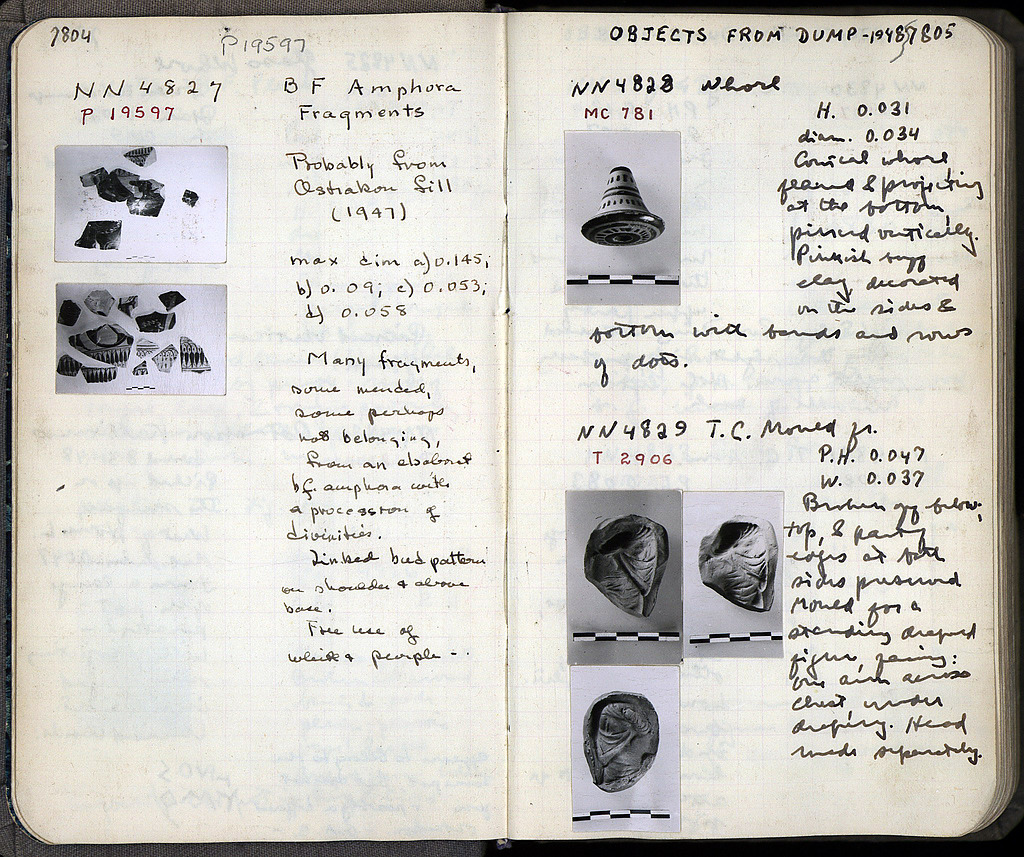 7804
P19597
NN4827
P 19597
BF Amphora
Fragments
Probably from
Ostrakon fill
(1947)
max dim a) 0.145;
b) 0.09; c) 0.053;
d) 0.058
Many fragments,
some mended,
some perhaps
not belonging,
from an elaborate
bf. amphora with
a procession of
divinities.
Linked bud pattern
on shoulder & above
base.
Free use of
white & purple --
OBJECTS FROM DUMP-1948
7805
NN4828 Whorl
MC 781
H. 0.031
diam. 0.034
Conical whorl
flaring & projecting
at the bottom
pierced vertically.
Pinkish buff
clay decorated
on the sides &
bottom with bands and rows
of dots.
NN4829 T.C. Mould fr.
T 2906
P.H. 0.047
W. 0.037
Broken off below,
top, & partly
edges at both
sides preserved
Mould for a
standing draped
figure, facing:
one arm across
chest, under
drapery. Head
made separately.